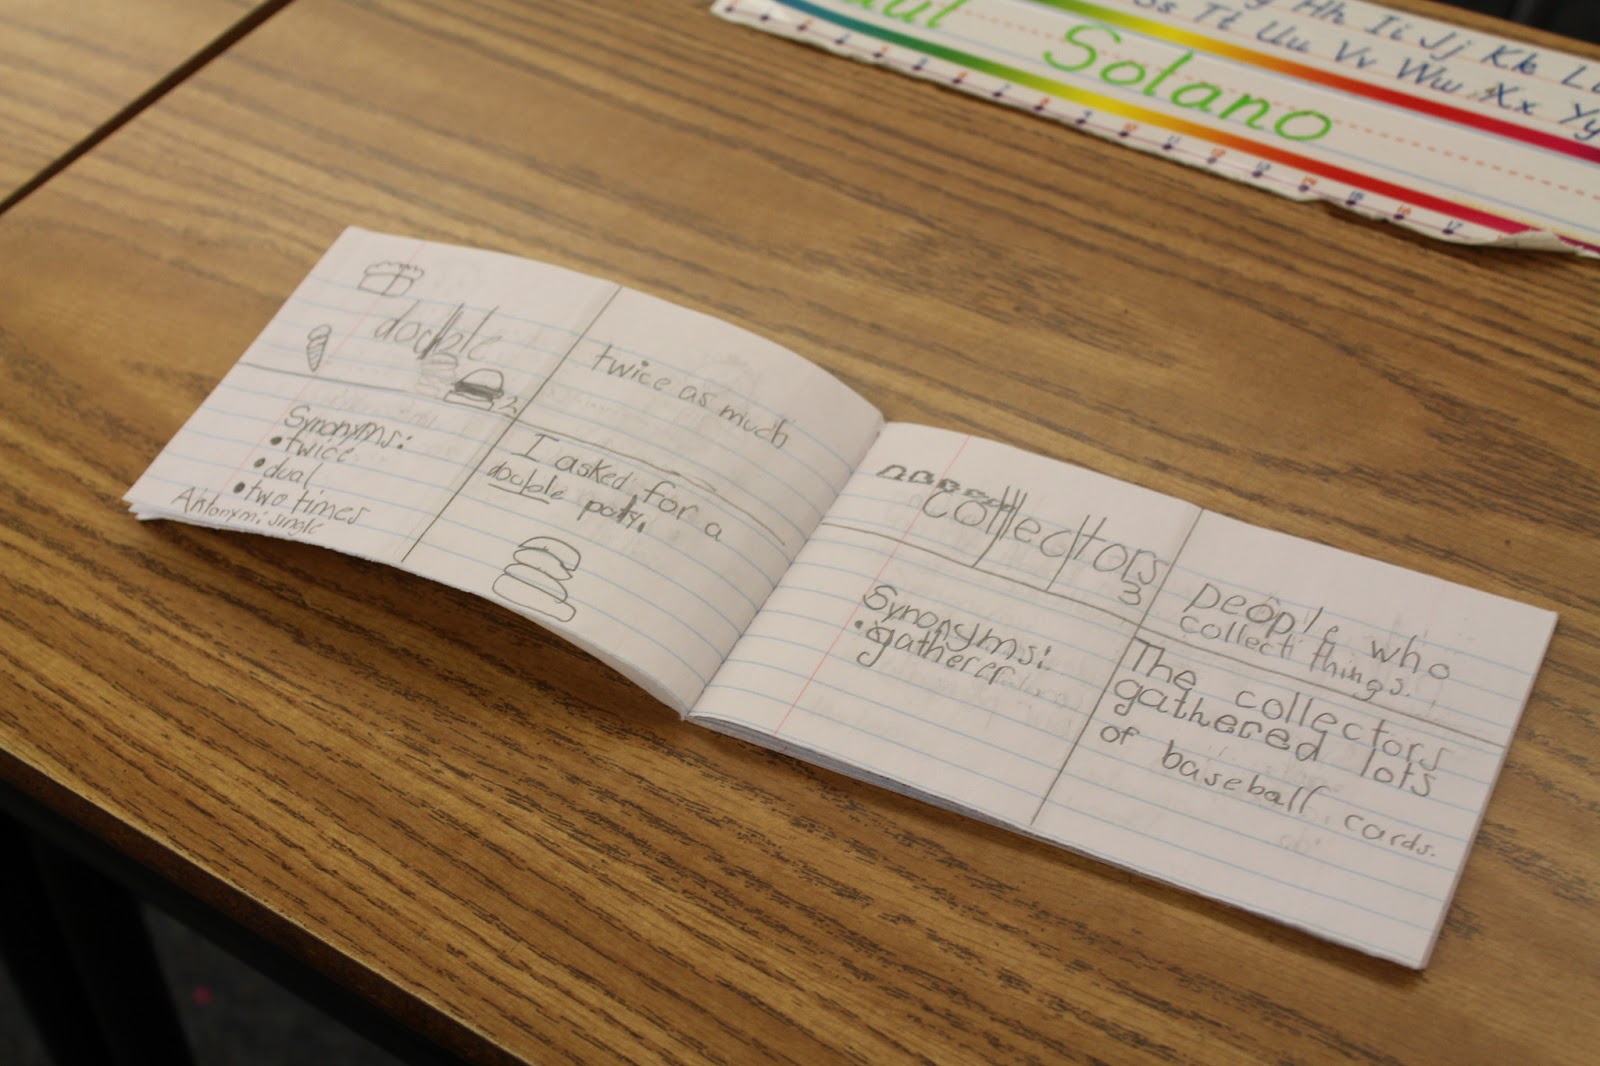 Hh Ii Jj Kk
Tt Uu Vv Ww Xx Yy
Solano
double
2
twice as much
Synonyms:
• twice
• dual
• two times
Antonym: single
I asked for a
double paty.
collectors
3
people who
collect things.
Synonyms:
• gatherer
The collectors
gathered lots
of baseball cards.